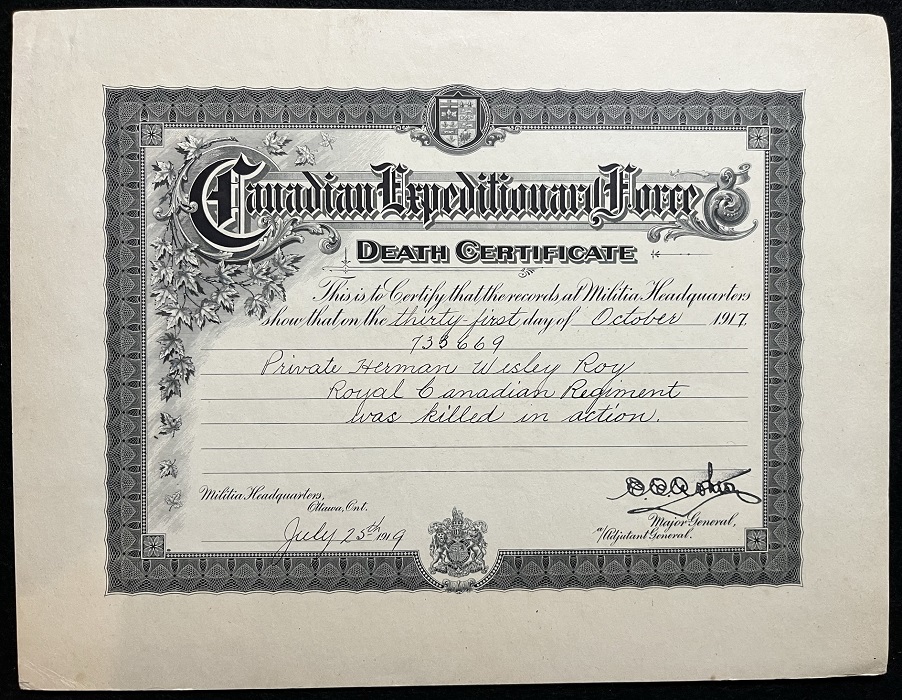 Canadian Expeditionary Force
DEATH CERTIFICATE
This is to Certify that the records at Militia Headquarters
show that on the thirty-first day of October 1917.
733669
Private Herman Wesley Roy
Royal Canadian Regiment
was killed in action.
Militia Headquarters,
Ottawa, Ont.
July 25th 1919
Major-General,
Adjutant General.